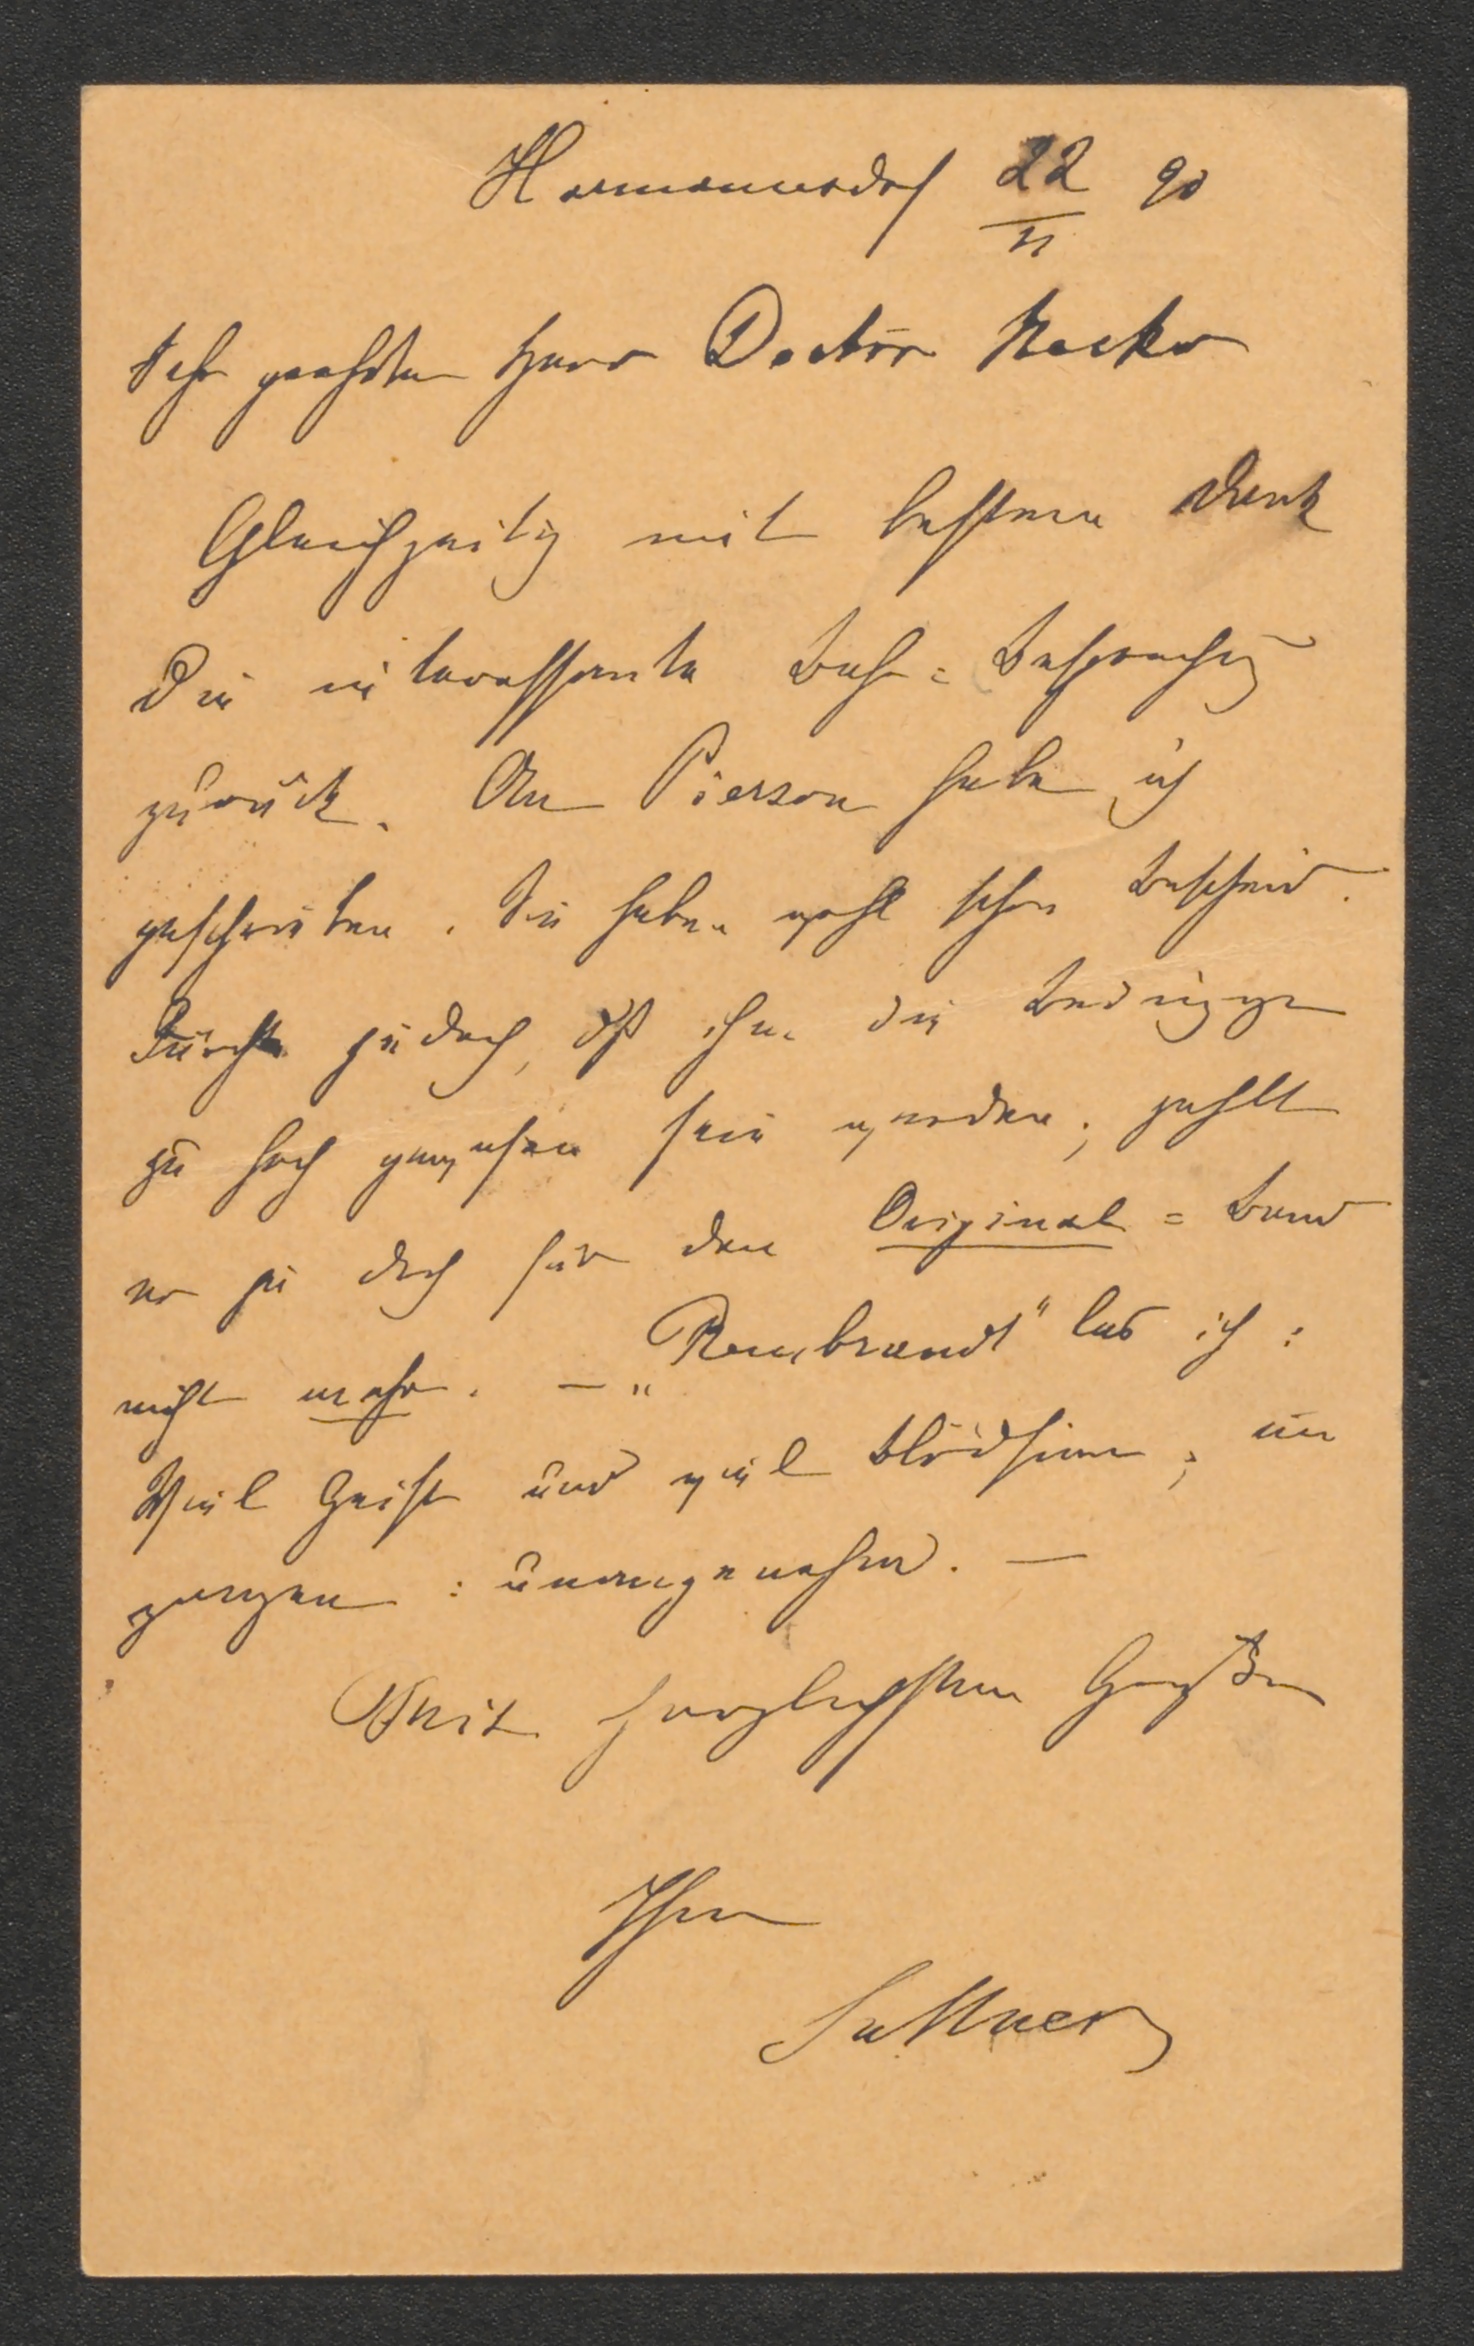 Harmannsdorf 22/II 90
Sehr geehrter Herr Doctor Necker
Gleichzeitig mit bestem Dank
die interessante Buch=Besprechg
zurück. An Pierson habe ich
geschrieben. Sie haben wohl schon Bescheid.
Fürchte jedoch, dß ihm die Bedingungen
zu hoch gewesen sein werden; zahlt
er ja doch für den Original=Band
nicht mehr. – „Rembrandt" las ich:
Viel Geist und viel Blödsinn; im
ganzen: unangenehm. —
Mit herzlichsten Grüßen
Ihre
Suttner